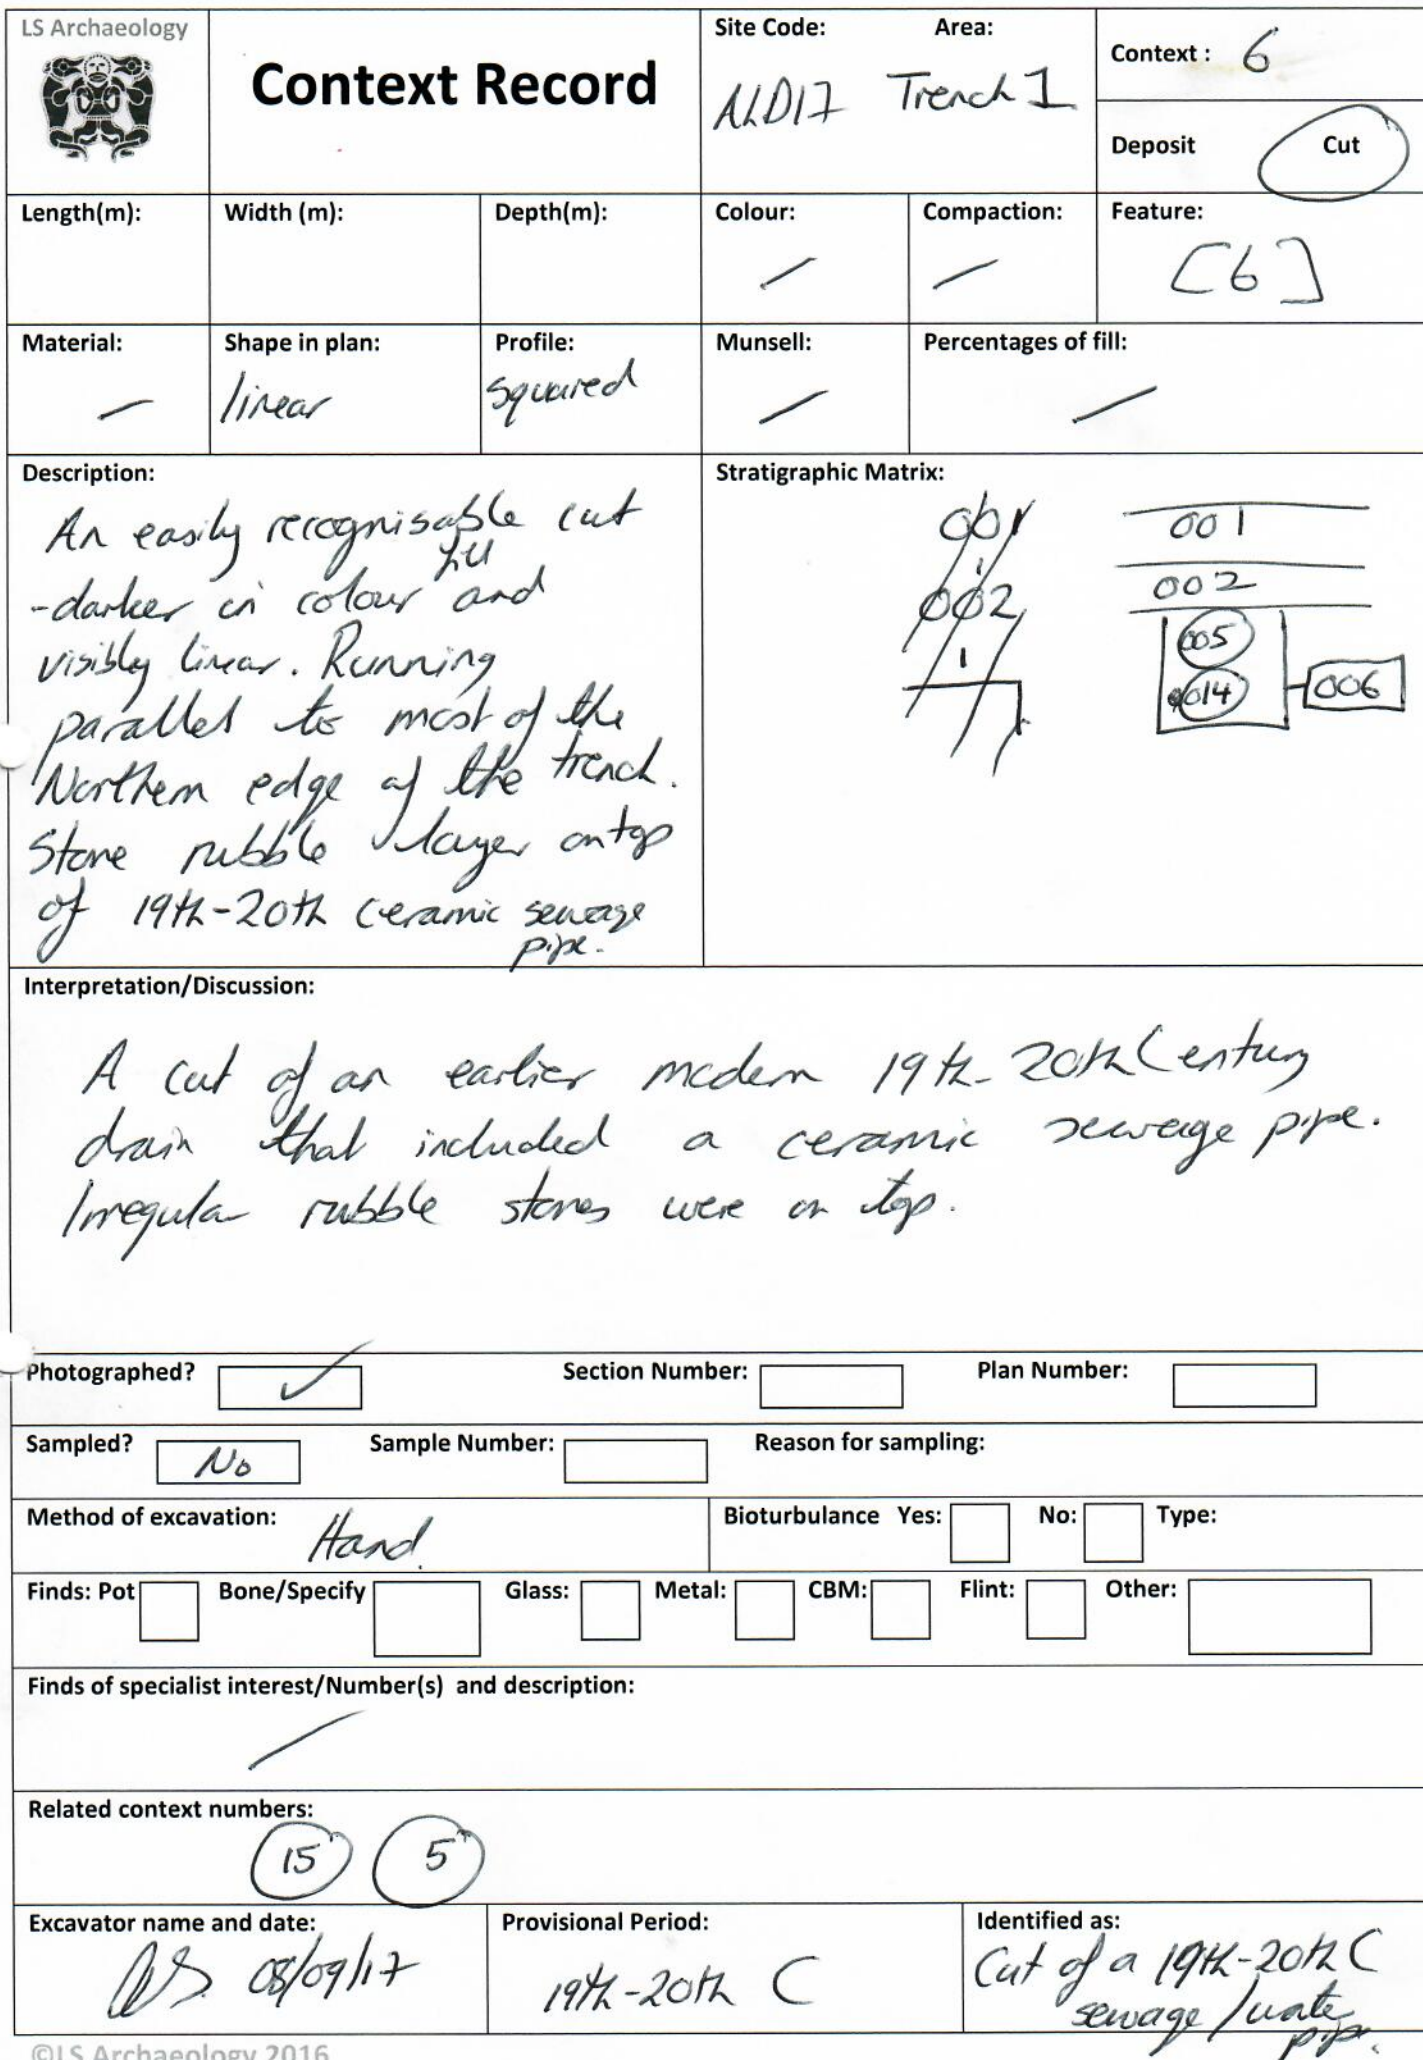 LS Archaeology
Context Record
Site Code: Area:
ALD17 Trench 1
Context : 6
Deposit Cut
Length(m): Width (m): Depth(m): Colour: Compaction: Feature:
/ / [6]
Material: Shape in plan: Profile: Munsell: Percentages of fill:
/ linear squared / /
Description:
An easily recognisable cut
fill
-darker in colour and
visibly linear. Running
parallel to most of the
Northern edge of the trench.
Stone rubble layer on top
of 19th-20th ceramic sewage
pipe.
Stratigraphic Matrix:
001
002
1
001
002
005
014
006
Interpretation/Discussion:
A cut of an earlier modern 19th-20th Century
drain that included a ceramic sewage pipe.
Irregular rubble stones were on top.
Photographed? ✓ Section Number: Plan Number:
Sampled? No Sample Number: Reason for sampling:
Method of excavation: Hand. Bioturbulance Yes: No: Type:
Finds: Pot Bone/Specify Glass: Metal: CBM: Flint: Other:
Finds of specialist interest/Number(s) and description:
/
Related context numbers:
15 5
Excavator name and date:
08/09/17
Provisional Period:
19th-20th C
Identified as:
Cut of a 19th-20th C
sewage / 
pipe.
©LS Archaeology 2016